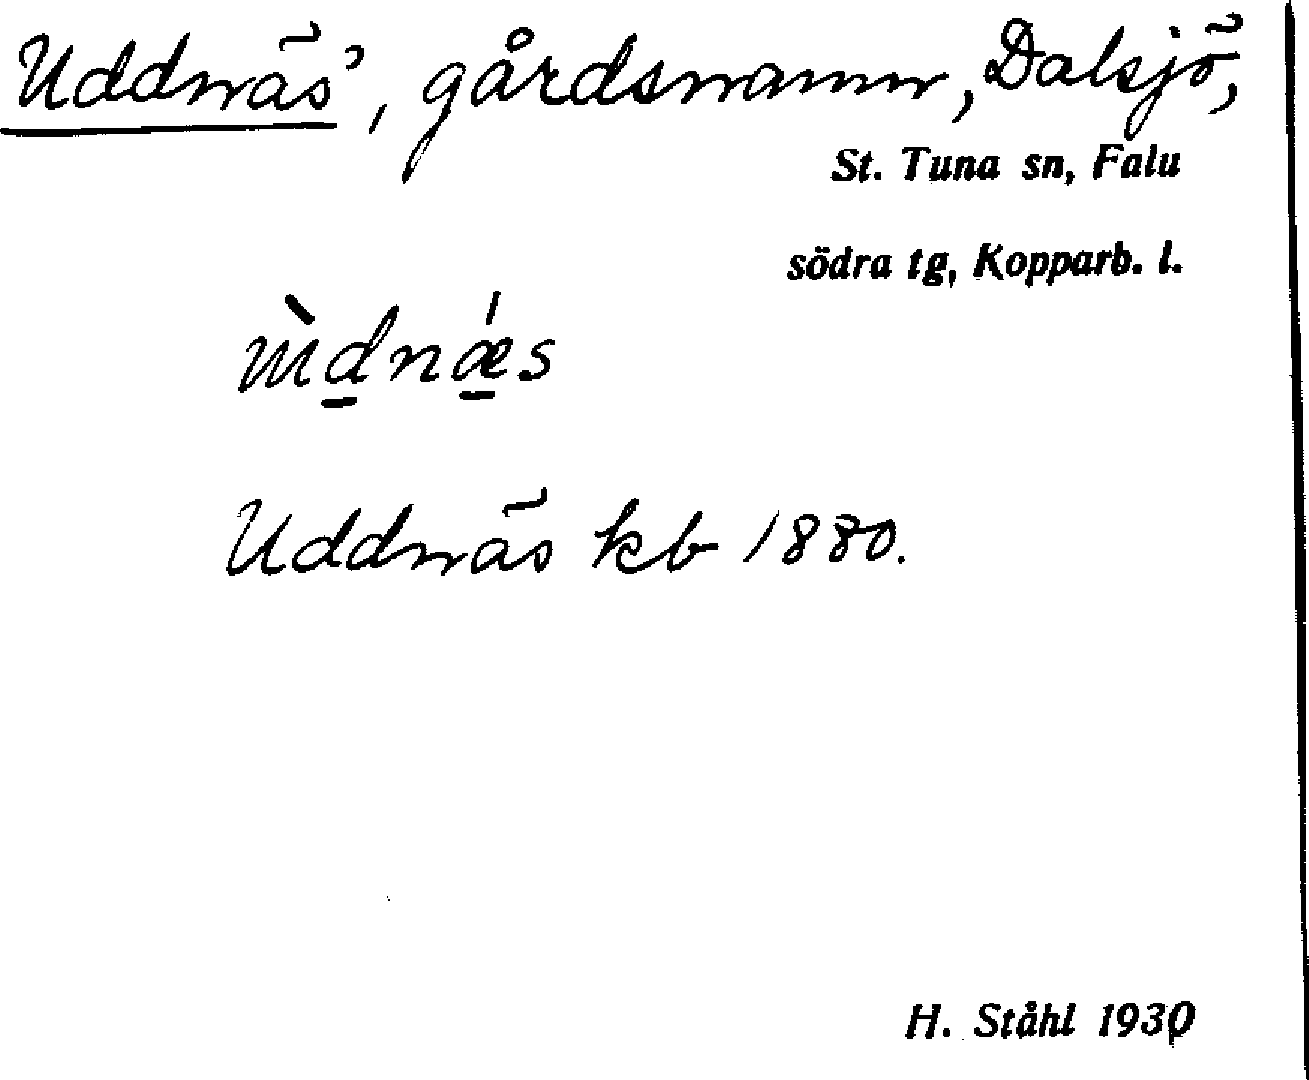 Uddnäs', gårdsnamn, Dalsjö,
St. Tuna sn, Falu
södra tg, Kopparb. l.
Uddnäs kb 1880.
H. Ståhl 1930